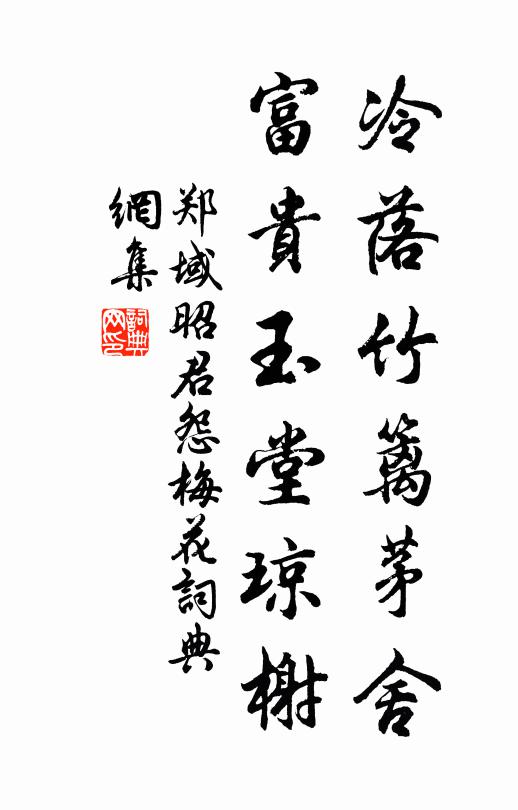 冷落竹篱茅舍
富貴玉堂琼榭
郑域昭君怨梅花詞典
網集
詞典
网印